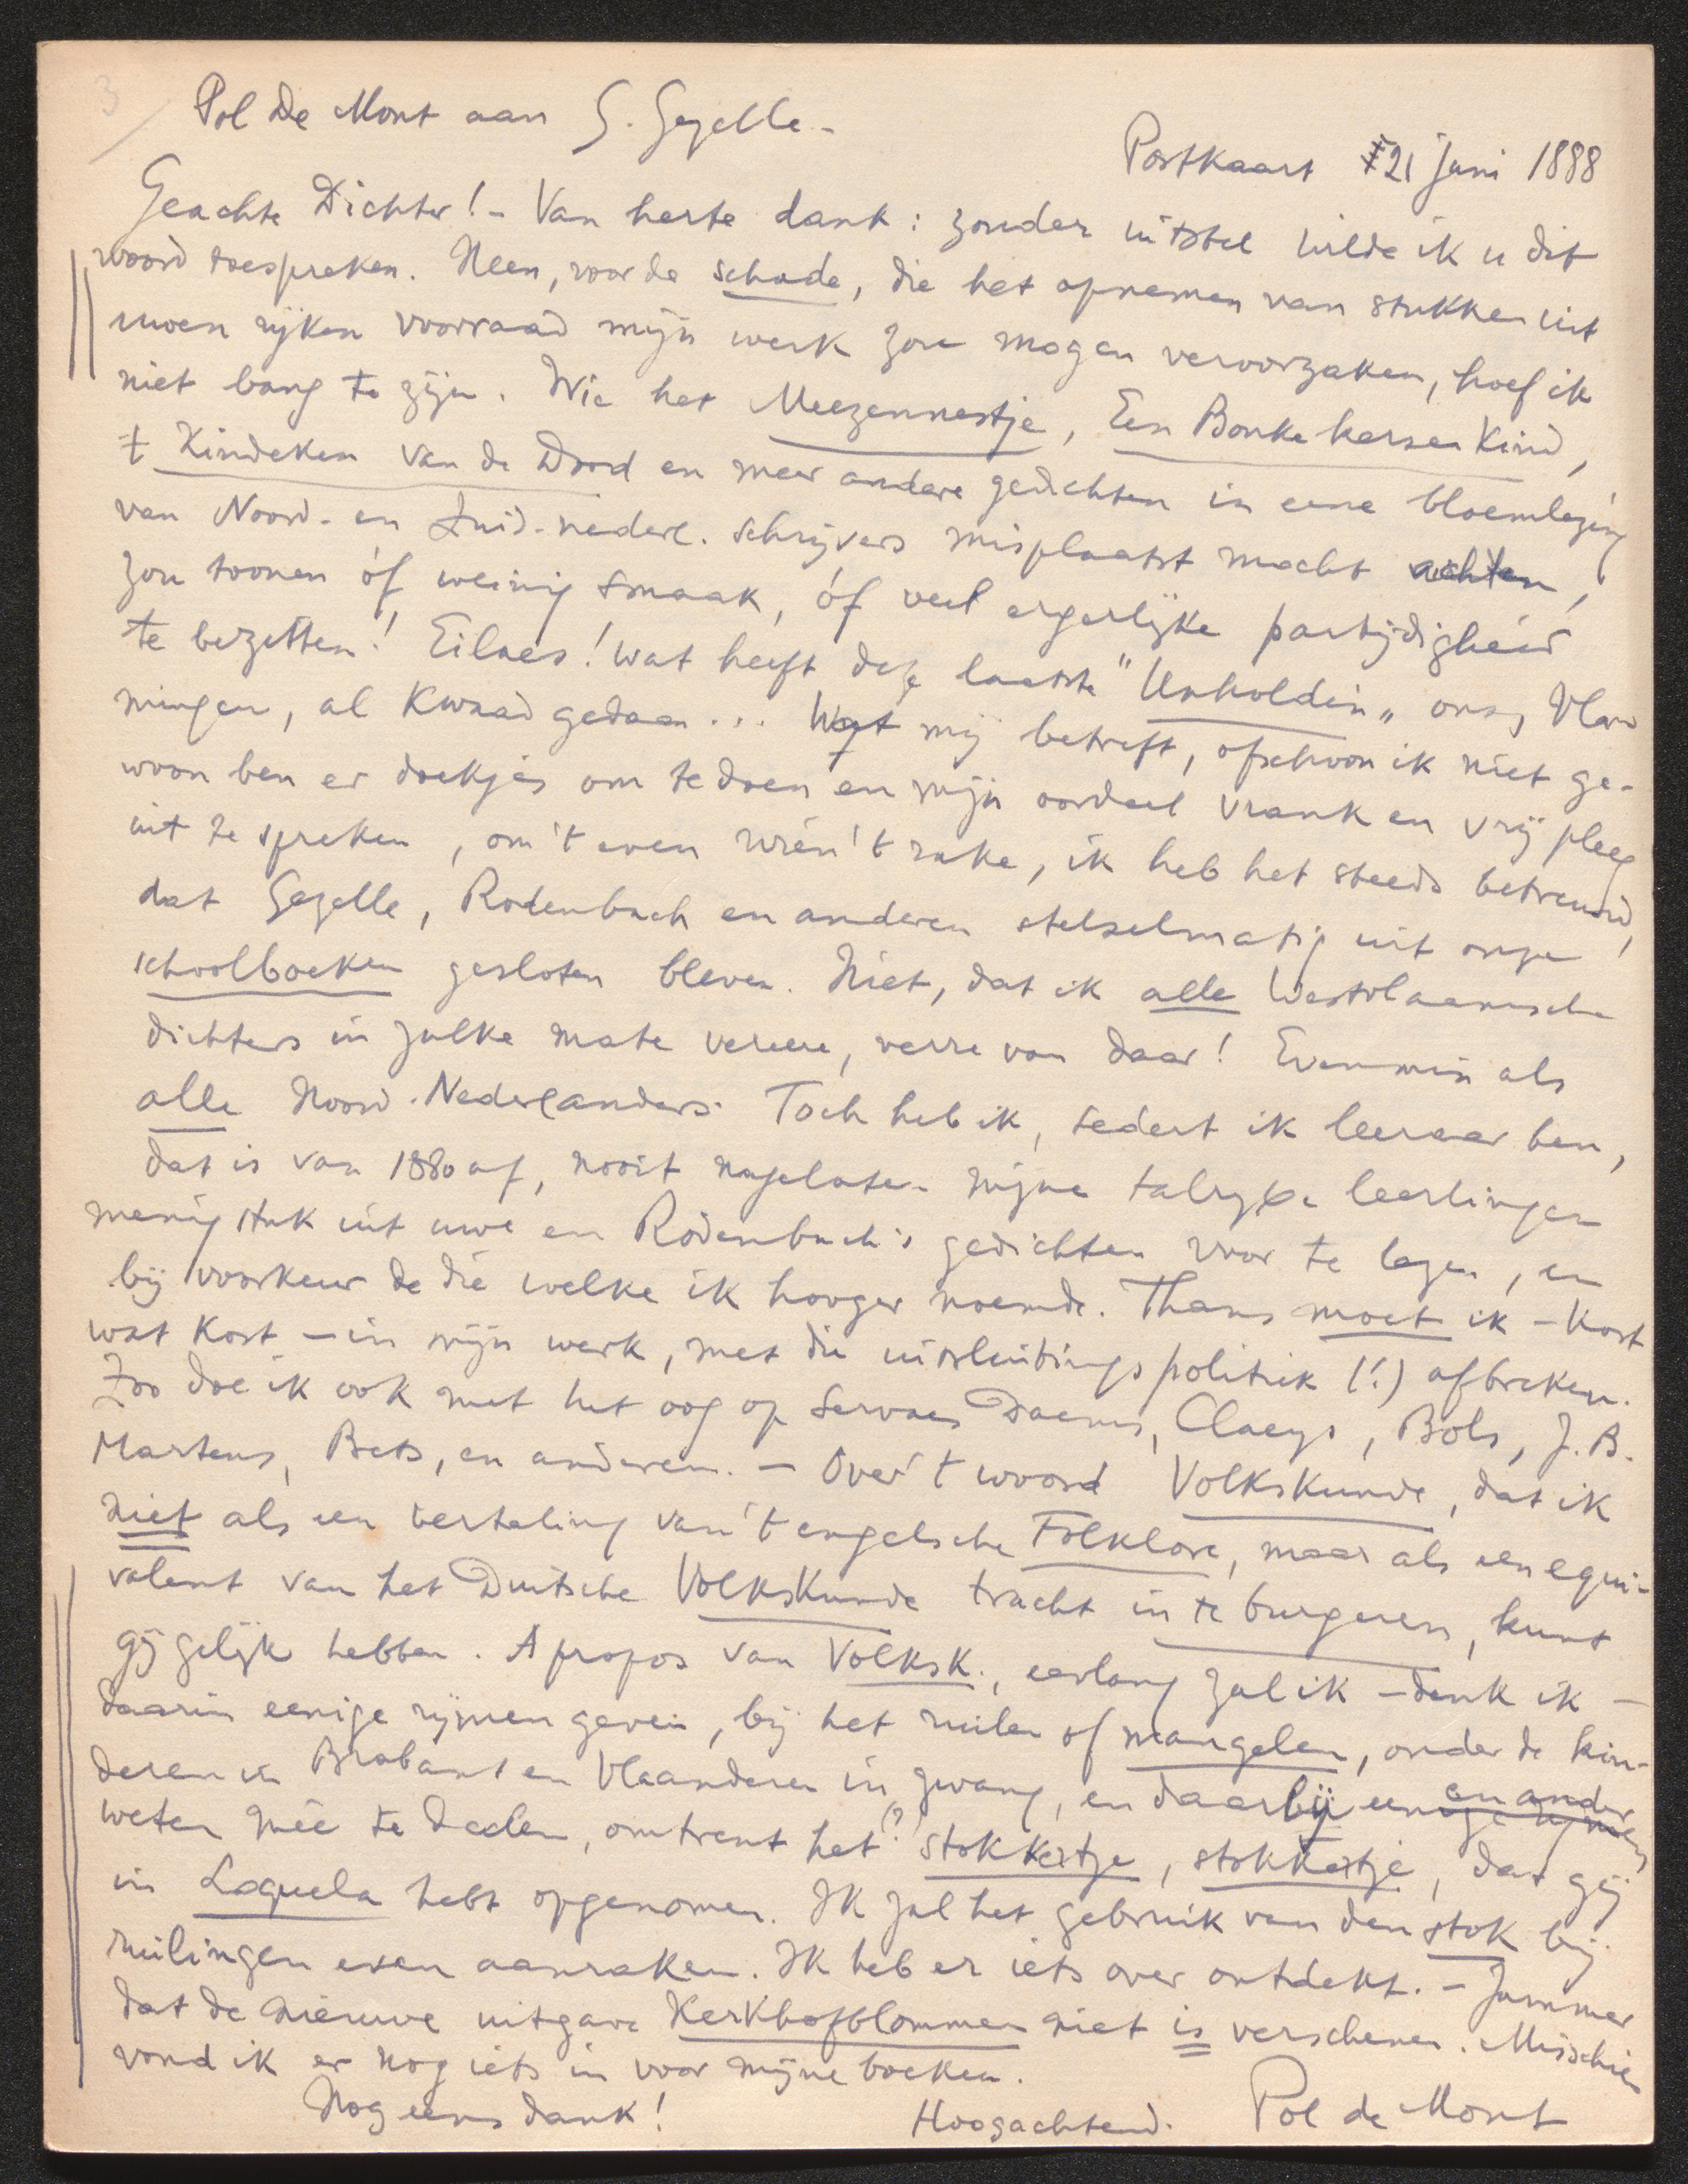 3/ Pol De Mont aan G. Gezelle -
Postkaart 21 juni 1888
Geachte Dichter! - Van herte dank: zonder uitstel wilde ik u dit
woord toespreken. Neen, voor de schade, die het opnemen van stukken uit
uwen rijken voorraad mijn werk zou mogen veroorzaken, hoef ik
niet bang te zijn. Wie het Meezennestje, Een Bonke kersen Kind,
't Kindeken van de Dood en meer andere gedichten in eene bloemlezing
van Noord- en Zuid-nederl. schrijvers misplaatst mocht achten,
zou toonen óf weinig smaak, óf veel ergerlijke partijdigheid
te bezitten! Eilaes! wat heeft deze laatste "Unholdin" ons, Vla
mingen, al Kwaad gedaan... Wat mij betreft, ofschoon ik niet ge-
woon ben er doekjes om te doen en mijn oordeel vrank en vrij pleeg
uit te spreken, om 't even wien 't rake, ik heb het steeds betreurd,
dat Gezelle, Rodenbach en anderen stelselmatig uit onze
schoolboeken gesloten bleven. Niet, dat ik alle Westvlaamsche
dichters in zulke mate vereere, verre van daar! Evenmin als
alle Noord-Nederlanders. Toch heb ik, sedert ik leeraar ben,
dat is van 1880 af, nooit nagelaten mijne talrijke leerlingen
menig stuk uit uwe en Rodenbach's gedichten voor te lezen, en
bij voorkeur de die welke ik hooger noemde. Thans moet ik - Kost
wat Kost - in mijn werk, met die uitsluitingspolitiek (!) afbreken.
Zoo doe ik ook met het oog op Servaes Daems, Claeys, Bols, J. B.
Martens, Bets, en anderen. - Over 't woord Volkskunde, dat ik
niet als een vertaling van 't engelsche Folklore, maar als een equi-
valent van het Duitsche Volkskunde tracht in te burgeren, kunt
gij gelijk hebben. A propos van Volksk., eerlang zal ik - denk ik -
daarin eenige rijmen geven, bij het ruilen of mangelen, onder de kin-
deren in Brabant en Vlaanderen in zwang, en daarbij een en ander
weten meê te deelen, omtrent het (?) stokketje, stokketje, dat gij
in Loquela hebt opgenomen. Ik zal het gebruik van den stok bij
ruilingen even aanraken. Ik heb er iets over ontdekt. - Jammer
dat de nieuwe uitgave Kerkhofblommen niet is verschenen. Misschien
vond ik er nog iets in voor mijne boeken.
Nog eens dank! Hoogachtend. Pol de Mont